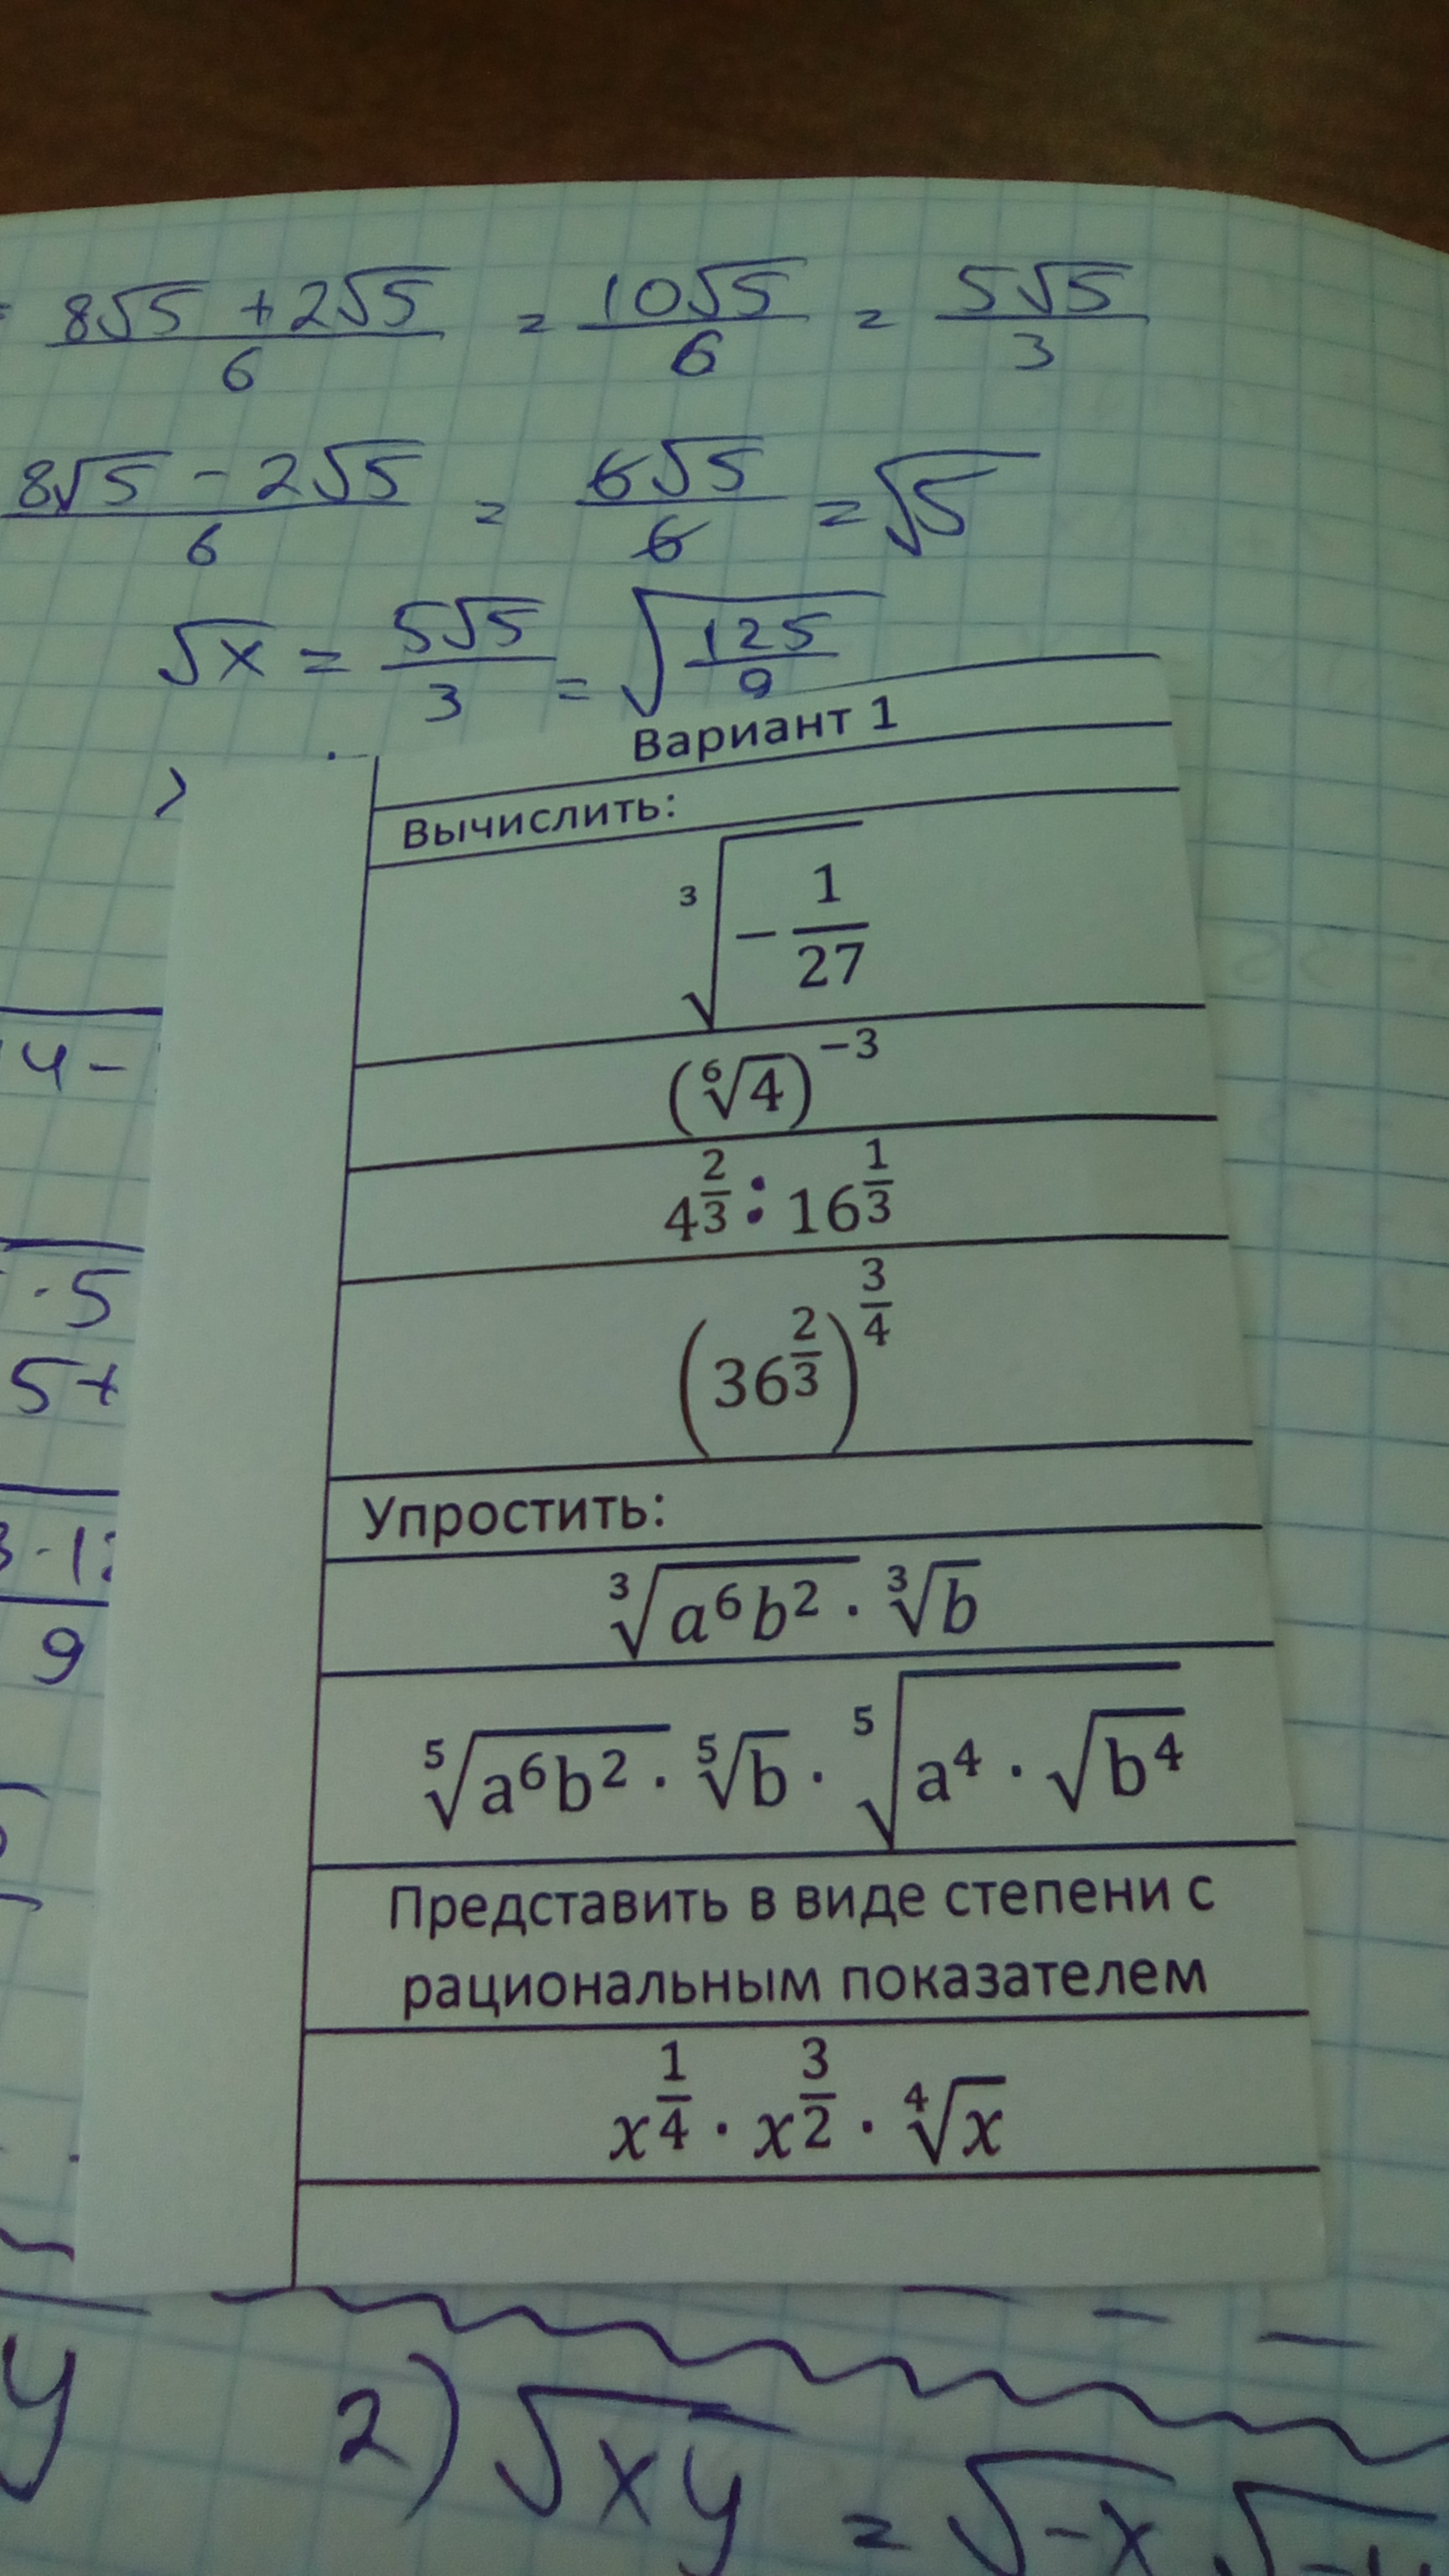 = (8√5 + 2√5)/6 = 10√5/6 = 5√5/3
(8√5 - 2√5)/6 = 6√5/6 = √5
√x = 5√5/3 = √(125/9)
Вариант 1
Вычислить:
∛(-1/27)
(⁶√4)^(-3)
4^(2/3) : 16^(1/3)
(36^(2/3))^(3/4)
Упростить:
∛(a⁶b²) · ∛b
⁵√(a⁶b²) · ⁵√b · ⁵√(a⁴ · √(b⁴))
Представить в виде степени с
рациональным показателем
x^(1/4) · x^(3/2) · ⁴√x
4 -
· 5
5 +
9
y
2) √xy = √-x